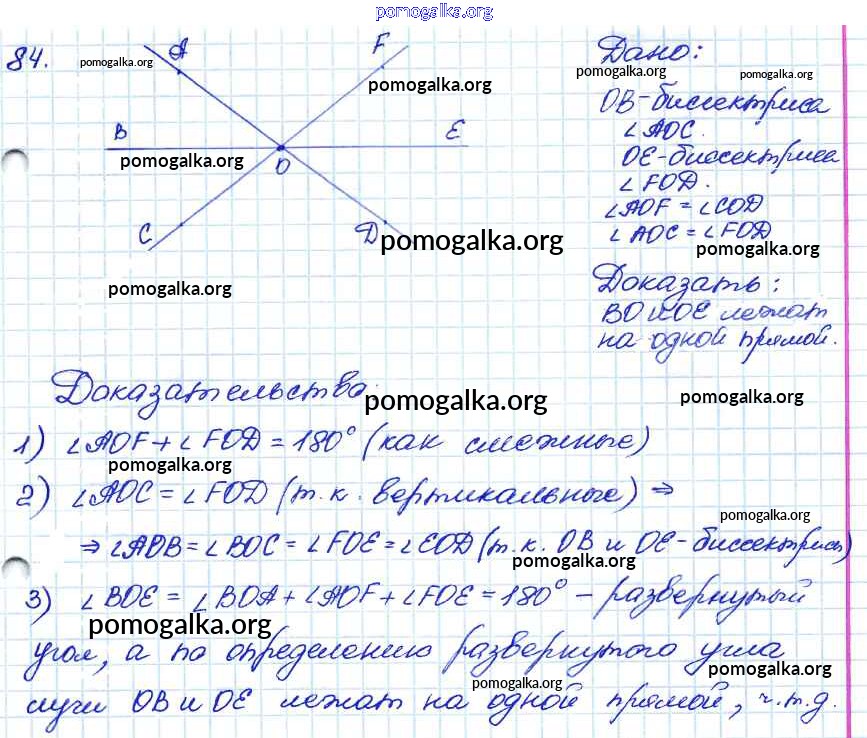 pomogalka.org
84.
pomogalka.org
A
F
pomogalka.org
B
E
pomogalka.org
O
C
D
pomogalka.org
pomogalka.org
Дано:
pomogalka.org
pomogalka.org
OB-биссектриса
∠AOC.
OE-биссектриса
∠FOD.
∠AOF = ∠COD
∠AOC = ∠FOD
pomogalka.org
Доказать:
BO и OE лежат
на одной прямой.
Доказательство:
pomogalka.org
pomogalka.org
1) ∠AOF + ∠FOD = 180° (как смежные)
pomogalka.org
2) ∠AOC = ∠FOD (т.к. вертикальные) ⇒
pomogalka.org
⇒ ∠AOB = ∠BOC = ∠FOE = ∠EOD (т.к. OB и OE-биссектрисы)
pomogalka.org
3) ∠BOE = ∠BOA + ∠AOF + ∠FOE = 180° - развернутый
pomogalka.org
угол, а по определению развернутого угла
pomogalka.org
pomogalka.org
лучи OB и OE лежат на одной прямой, ч.т.д.